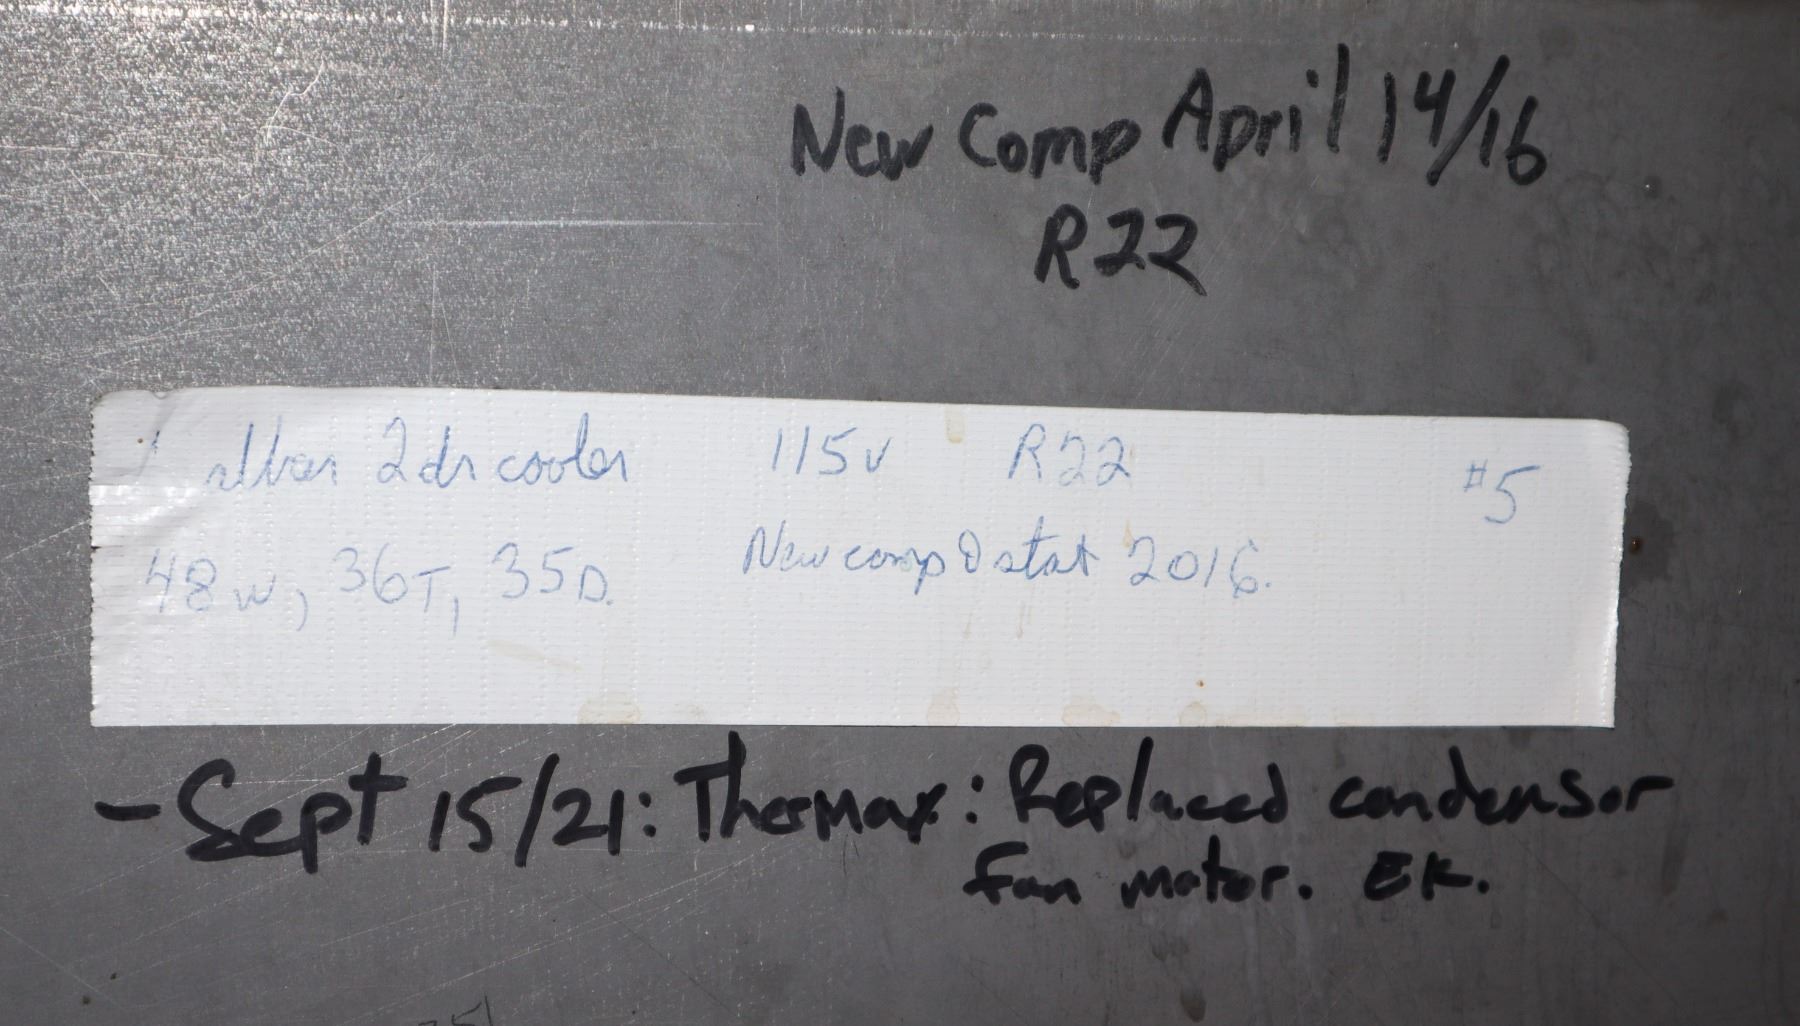 New Comp April 14/16
R22
2 dr cooler 115v R22 #5
48w, 36T, 35D. New comp & stat 2016.
- Sept 15/21: Thermax: Replaced condensor
fan motor. EK.